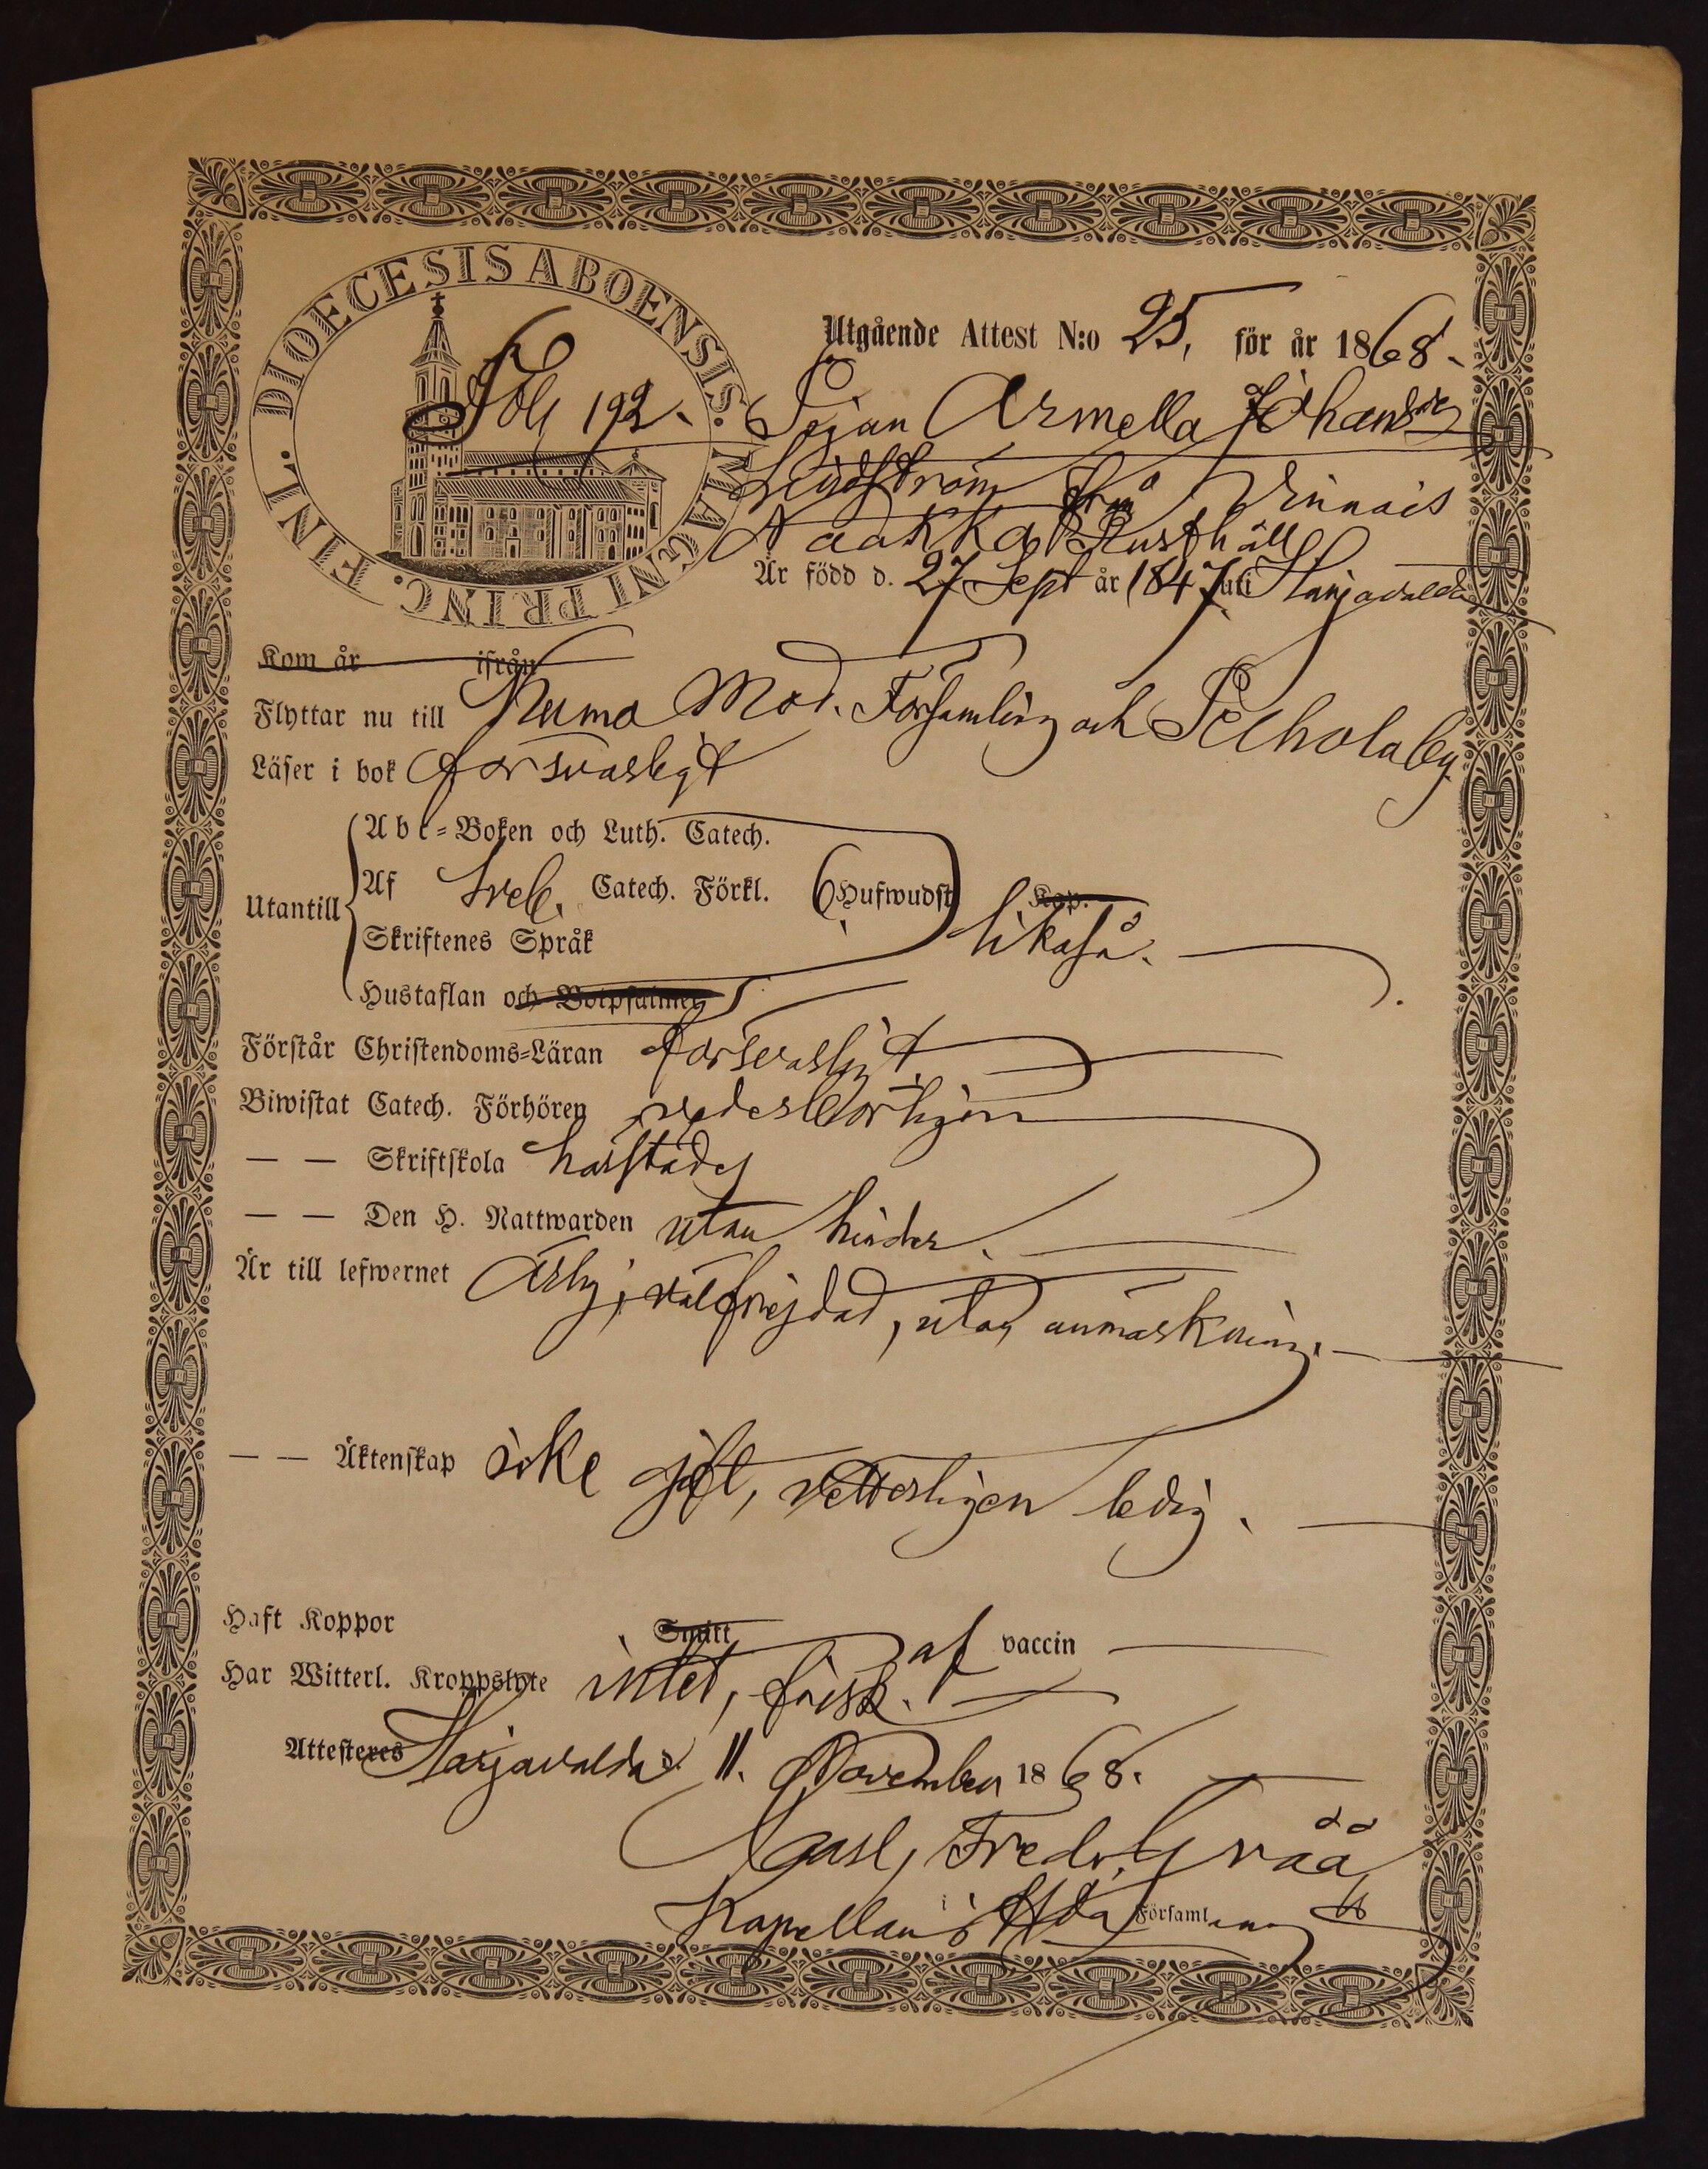 DIOECESIS ABOENSIS. MAGNI PRINC. FINL.
Fol 192.
Utgående Attest N:o 25, för år 1868.
Pigan Armella Johansdr
Lindström från
Naakka Rusthåll
Är född d. 27 Sept år 1847 uti Harjavalda
Kom år ifrån
Flyttar nu till Kumo Mod. Församling och by
Läser i bok försvarligt
Utantill
Abc-Boken och Luth. Catech.
Af Sveb. Catech. Förkl. 6 Hufwudst Kap.
Skriftenes Språk
likaså.
Hustaflan och Botpsalmen
Förstår Christendoms-Läran försvarligt
Biwistat Catech. Förhören vederbörligen
— — Skriftskola härstädes
— — Den H. Nattwarden utan hinder.
Är till lefwernet ärlig, välfrejdad, utan anmärkning.
— — Äktenskap icke gift, vetterligen ledig.
Haft Koppor Snitt af vaccin
Har Witterl. Kroppslyte intet, frisk.
Attesteres Harjavalda d. 11. November 1868.
Carl Fredr. Gråå
Kapellan i Hda Församling